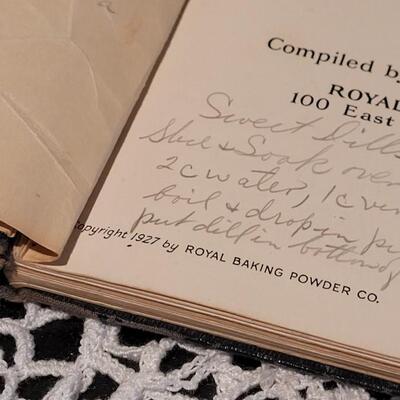 Compiled by
ROYAL
100 East
Sweet Dills
Slice & Soak over
2c water, 1c vin
boil & drop in
put dill in bottom of
Copyright 1927 by ROYAL BAKING POWDER CO.